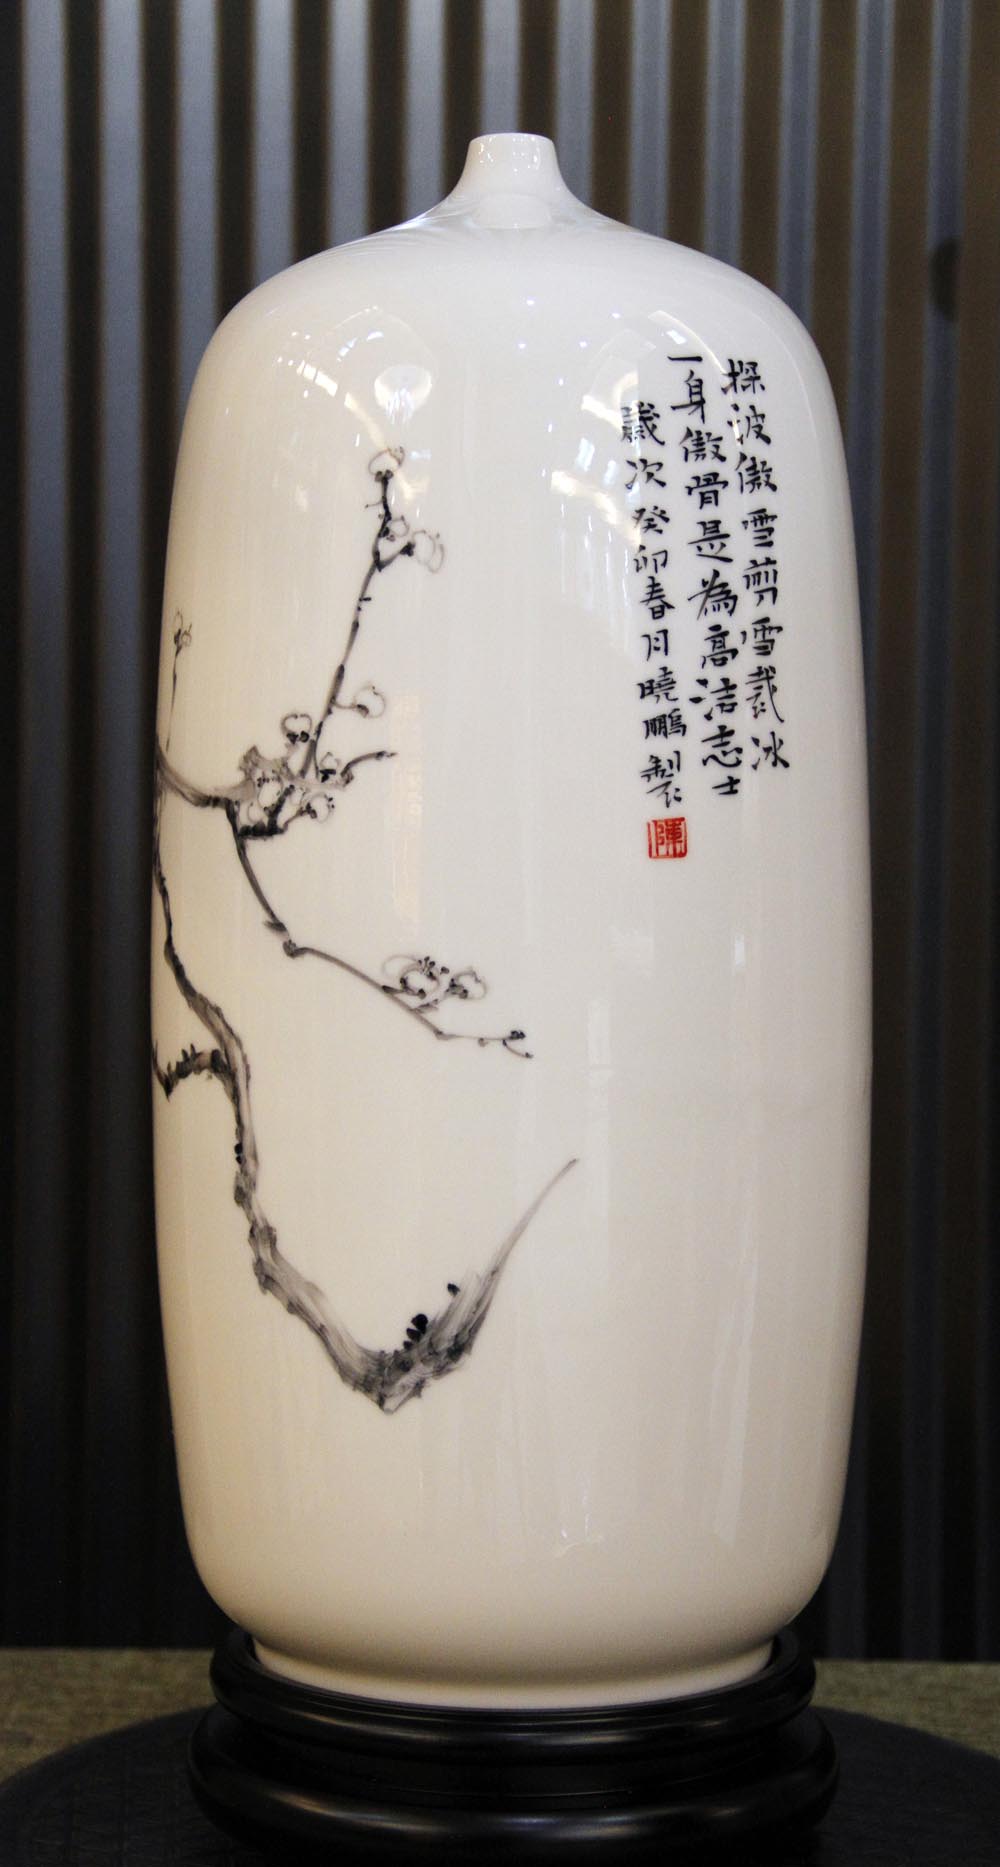 探波傲雪剪雪裁冰
一身傲骨是為高洁志士
歲次癸卯春月曉鵬製
陳